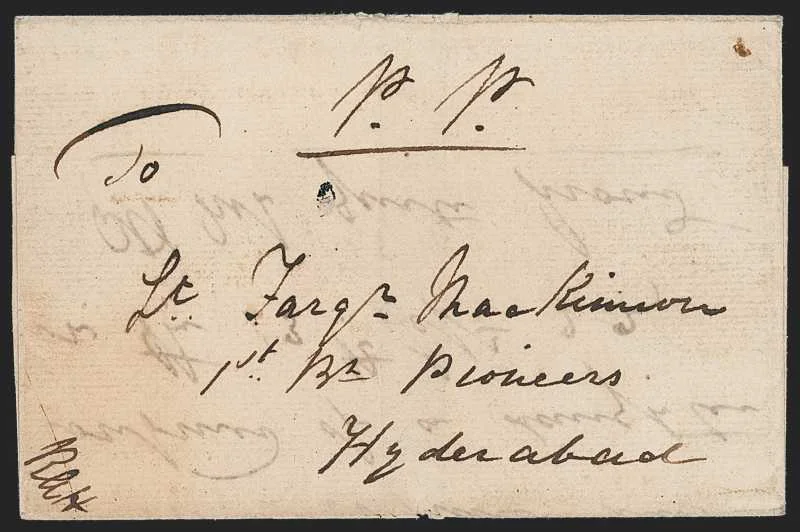 P. P.
To
Lt. Farqr. MacKinnon
1st. Bn Pioneers
Hyderabad